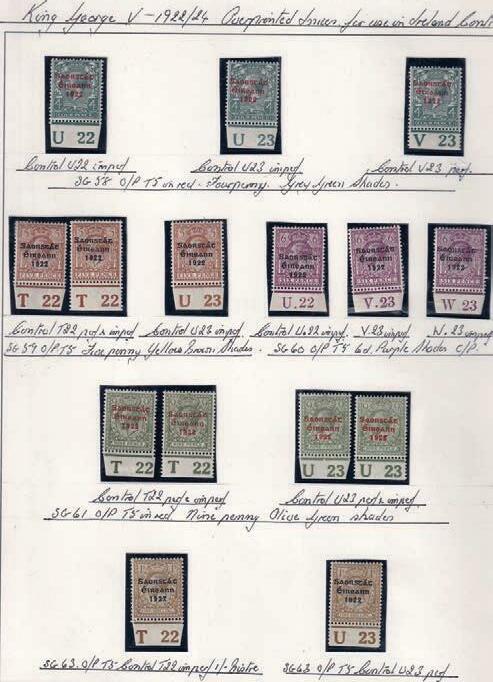 King George V - 1922/24 Overprinted Issues for use in Ireland Cont
Saorstát Éireann 1922 Saorstát Éireann 1922 Saorstát Éireann 1922
U 22 U 23 V 23
Control U22 imperf Control U23 imperf Control V23 perf.
SG 58 O/P T5 in red. Fourpenny Grey Green Shades.
Saorstát Éireann 1922 Saorstát Éireann 1922 Saorstát Éireann 1922 Saorstát Éireann 1922 Saorstát Éireann 1922 Saorstát Éireann 1922
FIVE PENCE FIVE PENCE FIVE PENCE
T 22 T 22 U 23 U.22 V.23 W 23
Control T22 perf & imperf Control U23 imperf Control U22 imperf. V.23 imperf W.23 imperf
SG59 O/P T5 Fivepenny Yellow Brown Shades. SG 60 O/P T5 6d. Purple Shades C/P.
Saorstát Éireann 1922 Saorstát Éireann 1922 Saorstát Éireann 1922 Saorstát Éireann 1922
T 22 T 22 U 23 U 23
Control T22 perf & imperf Control U23 perf & imperf
SG 61 O/P T5 in red Nine penny Olive Green shades
Saorstát Éireann 1922 Saorstát Éireann 1922
T 22 U 23
SG 63 O/P T5 Control T22 imperf 1/- Bistre SG63 O/P T5 - Control U23 perf